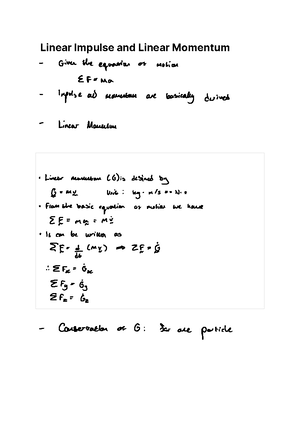 Linear Impulse and Linear Momentum
- Given the equation of motion
ΣF = ma
- Impulse and momentum are basically derived
- Linear Momentum
• Linear momentum (G) is defined by
G = mv Unit : kg · m/s == N·s
• From the basic equation of motion we have
ΣF = ma = mv̇
• It can be written as
ΣF = d/dt (mv) ⟹ ΣF = Ġ
∴ ΣFx = Ġx
ΣFy = Ġy
ΣFz = Ġz
- Conservation of G: For one particle